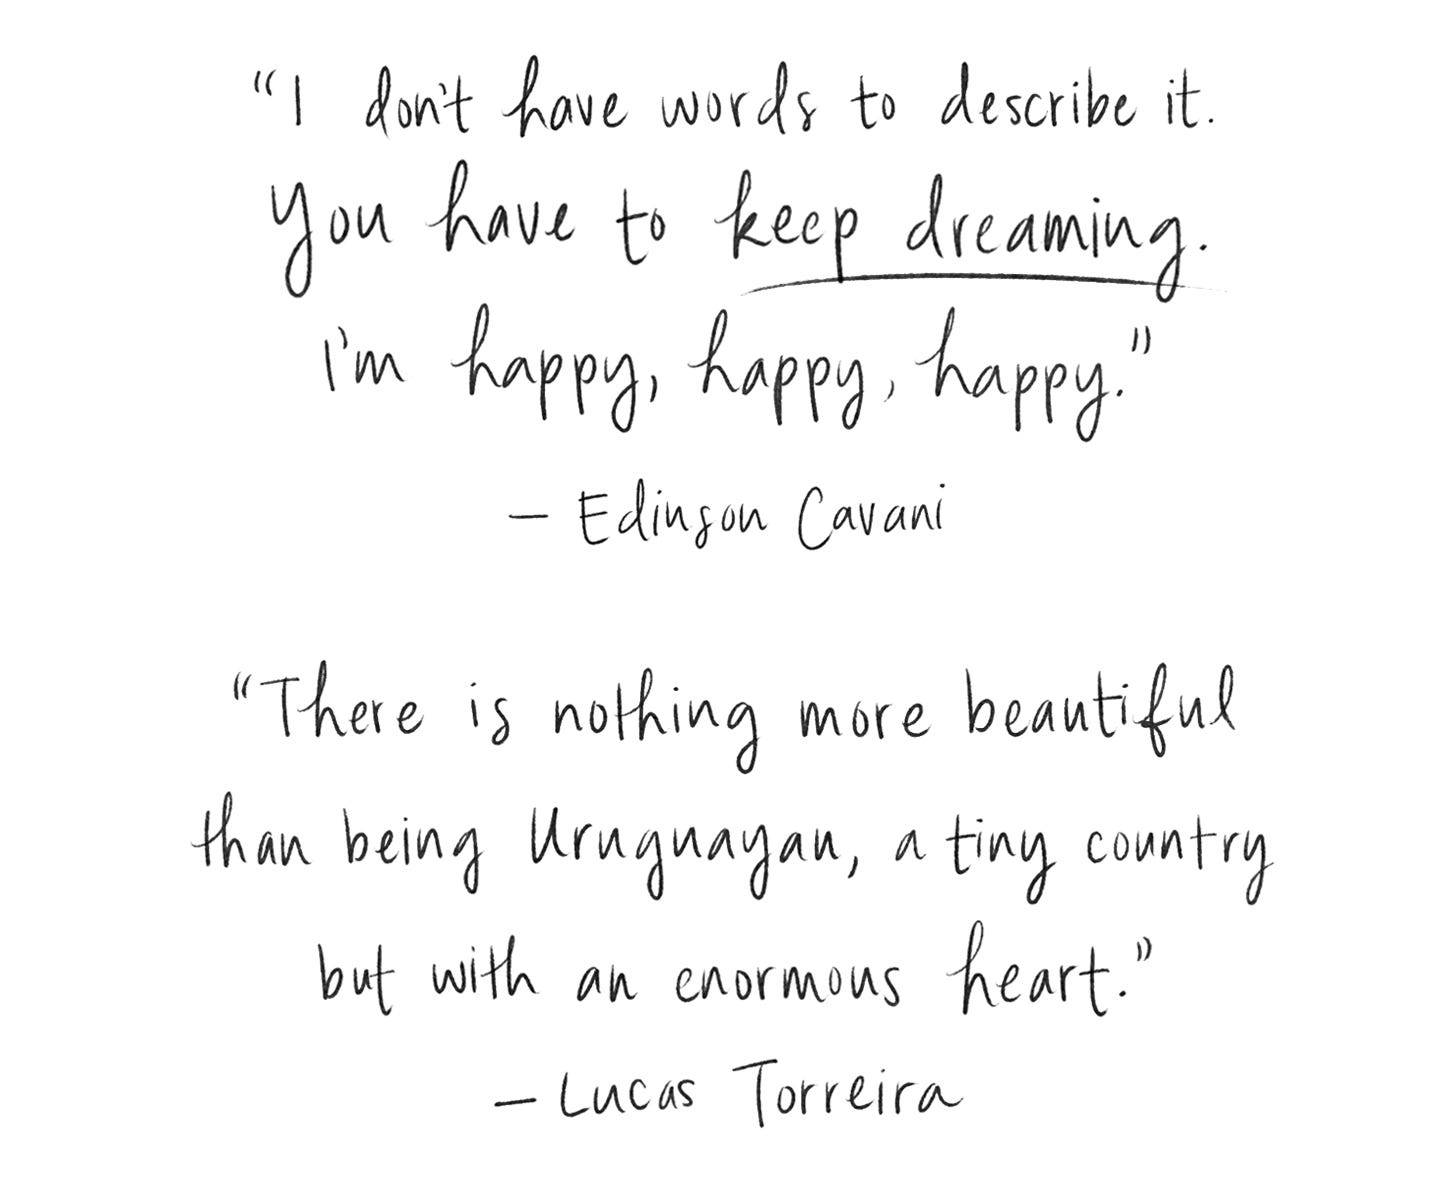 “I don't have words to describe it.
You have to keep dreaming.
I'm happy, happy, happy.”
— Edinson Cavani
“There is nothing more beautiful
than being Uruguayan, a tiny country
but with an enormous heart.”
— Lucas Torreira